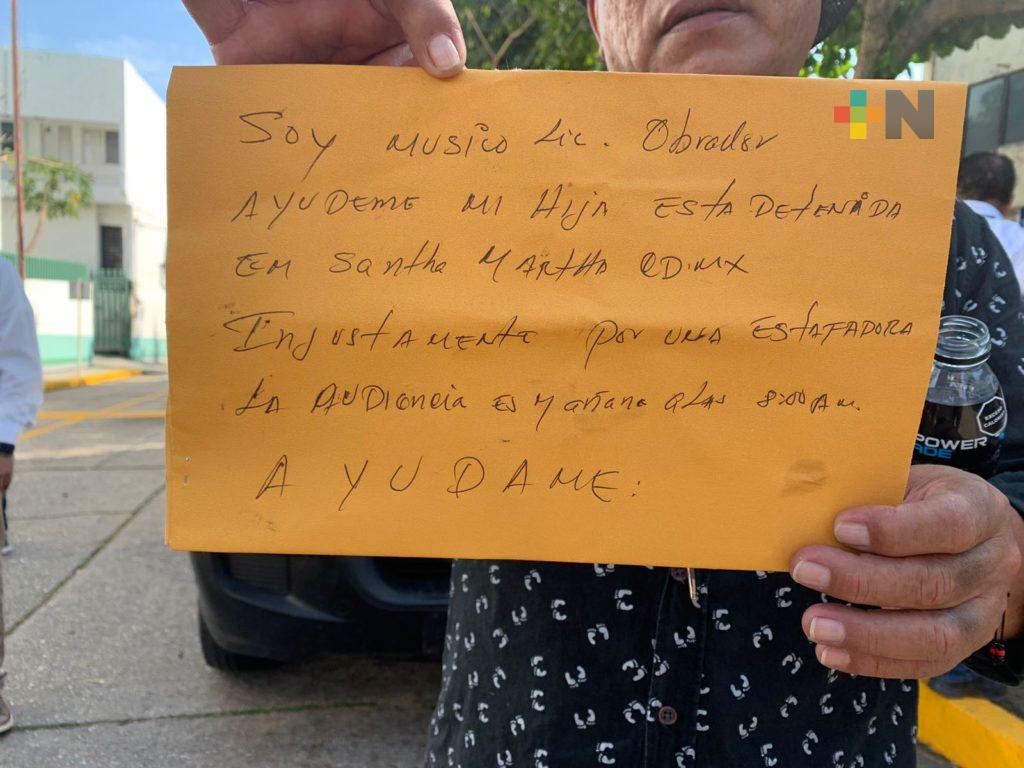 +N
SOY MUSICO Lic. Obrador
AYUDEME MI HIJA ESTA DETENIDA
EM Santha MARTHA CD.MX
INJUSTAMENTE POR UNA ESTAFADORA
LA AUDIENCIA ES MAÑANA A LAS 8:00 A M.
AYUDAME:
POWER
ADE
EXCESO
CALORÍAS